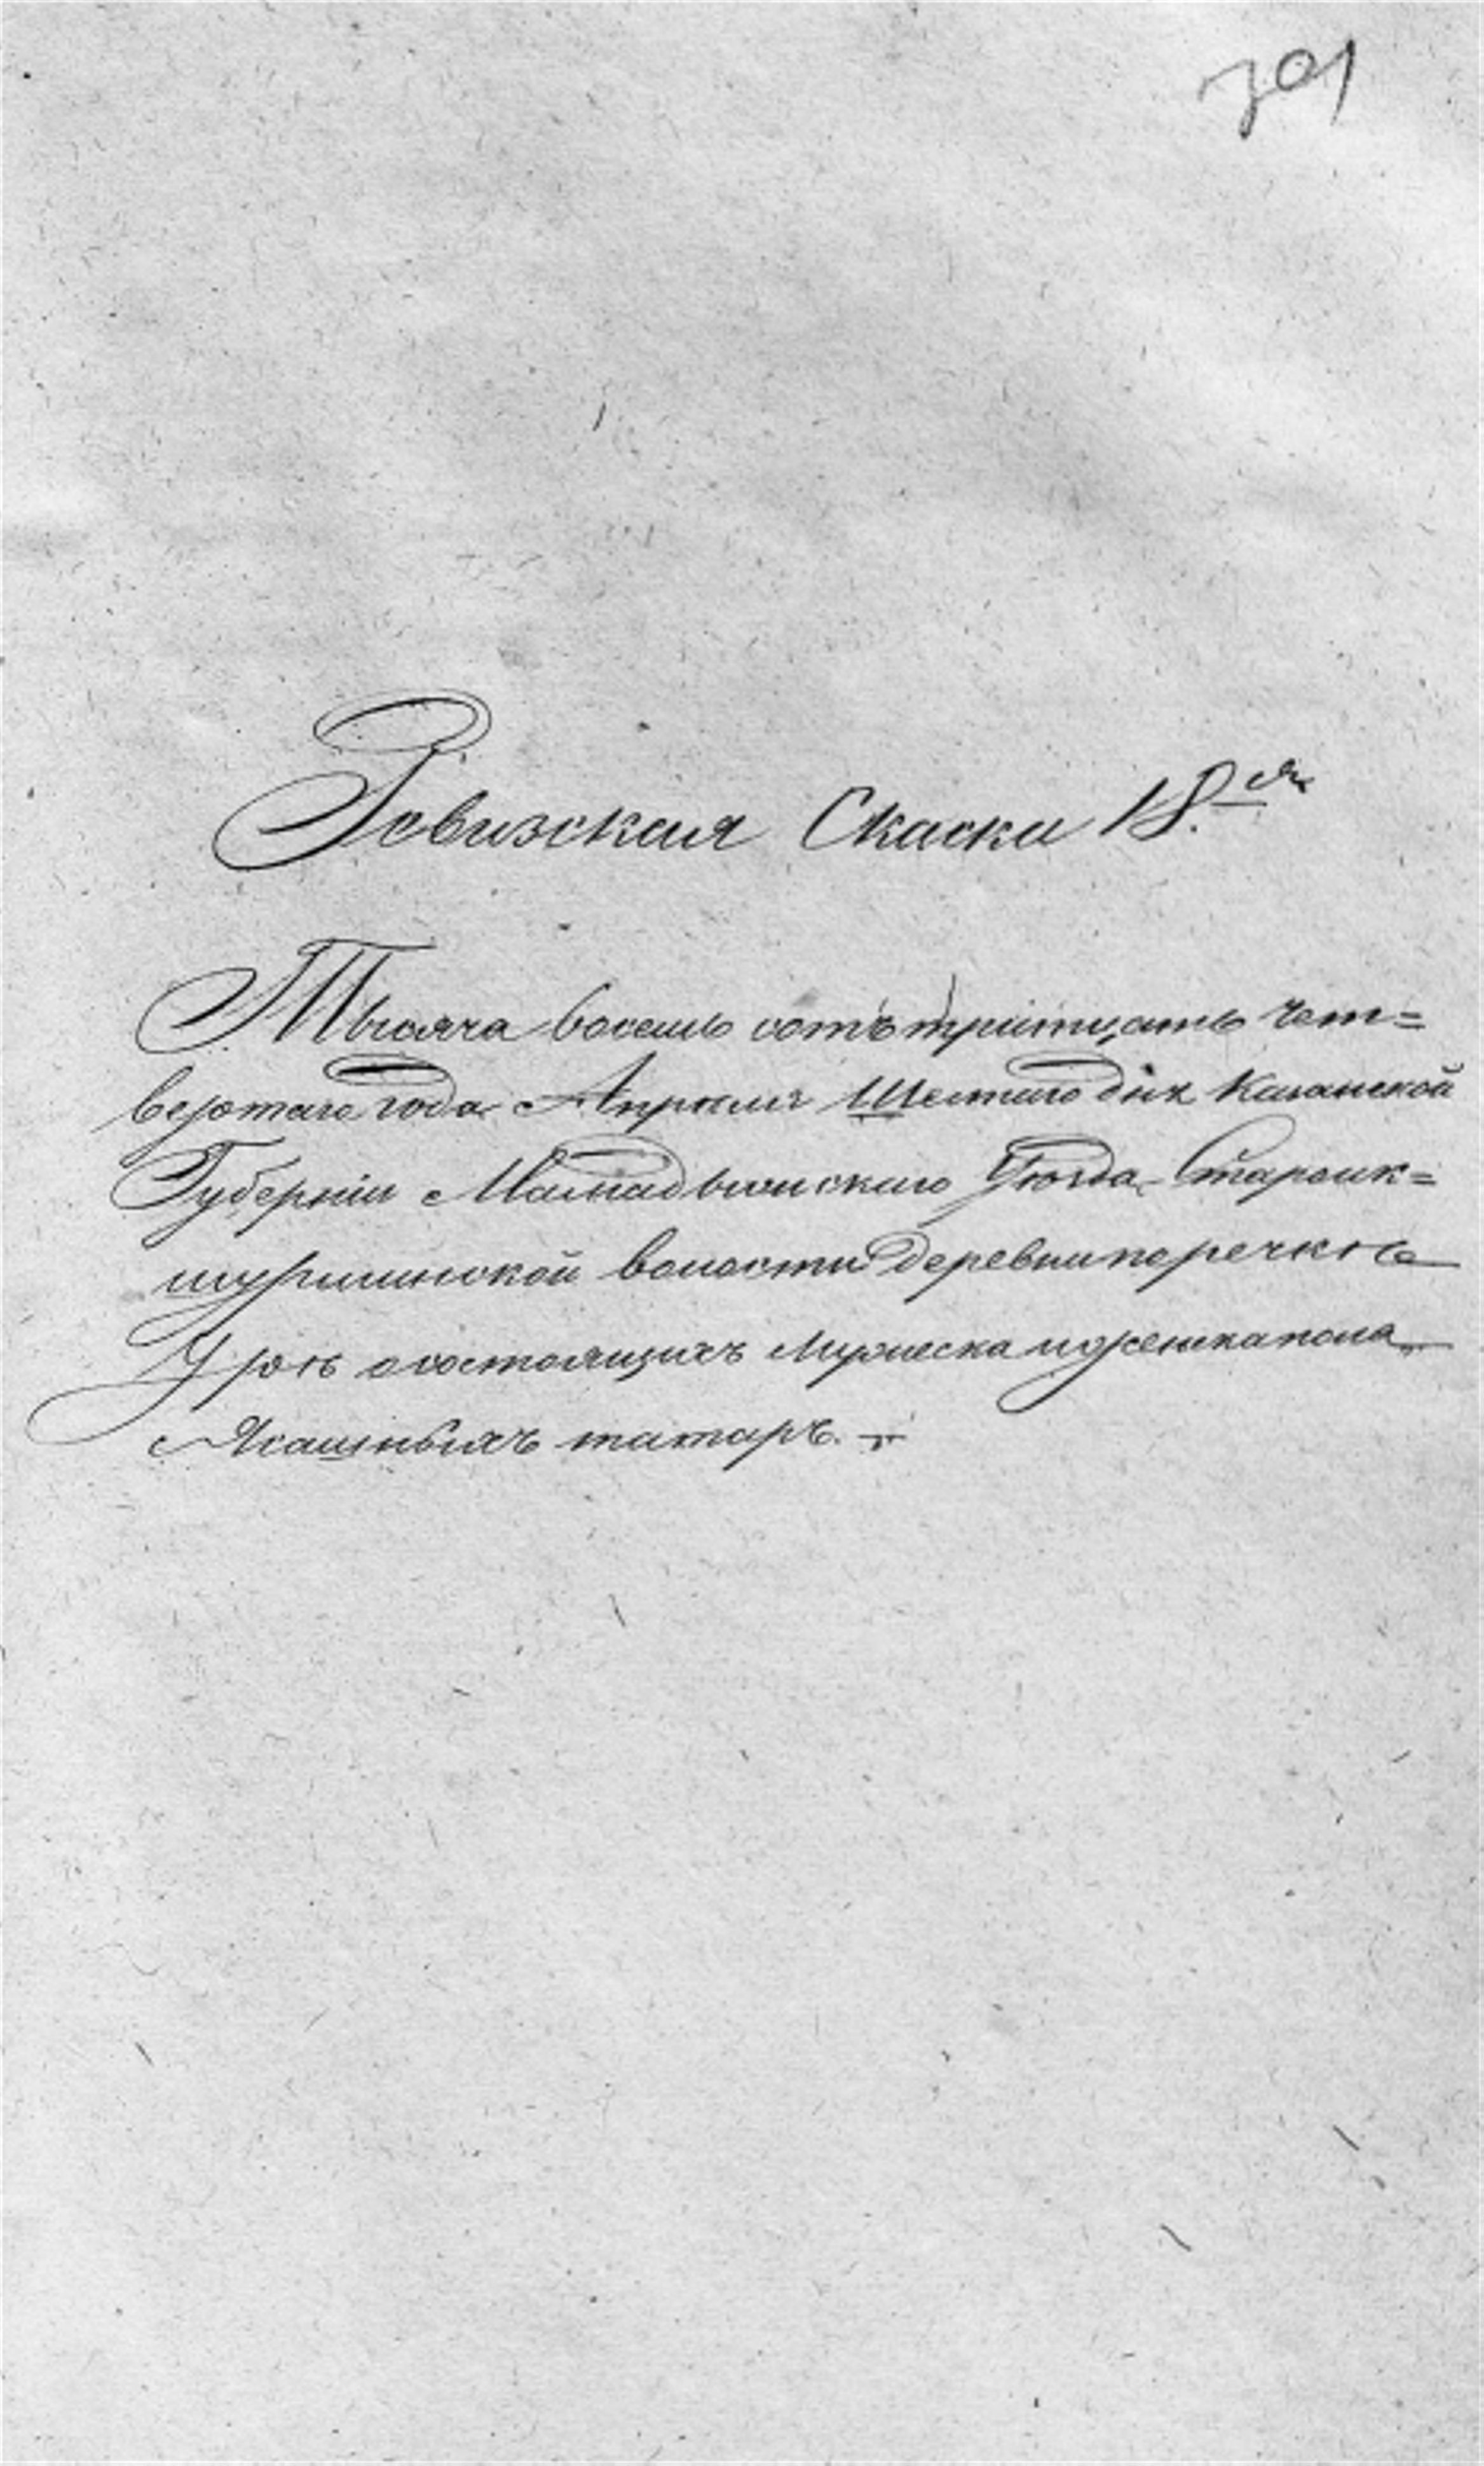 701
Ревизская Скаска 18.ая
Тысяча восемь сотъ тритцать чет=
вертаго года Апреля Шестаго дня Казанской
Губерніи Мамадышскаго Уезда Староик=
шурминской волости деревни поречкѣ
Урѣ осостоящихъ Мужеска иженска пола
Ясашныхъ татаръ.